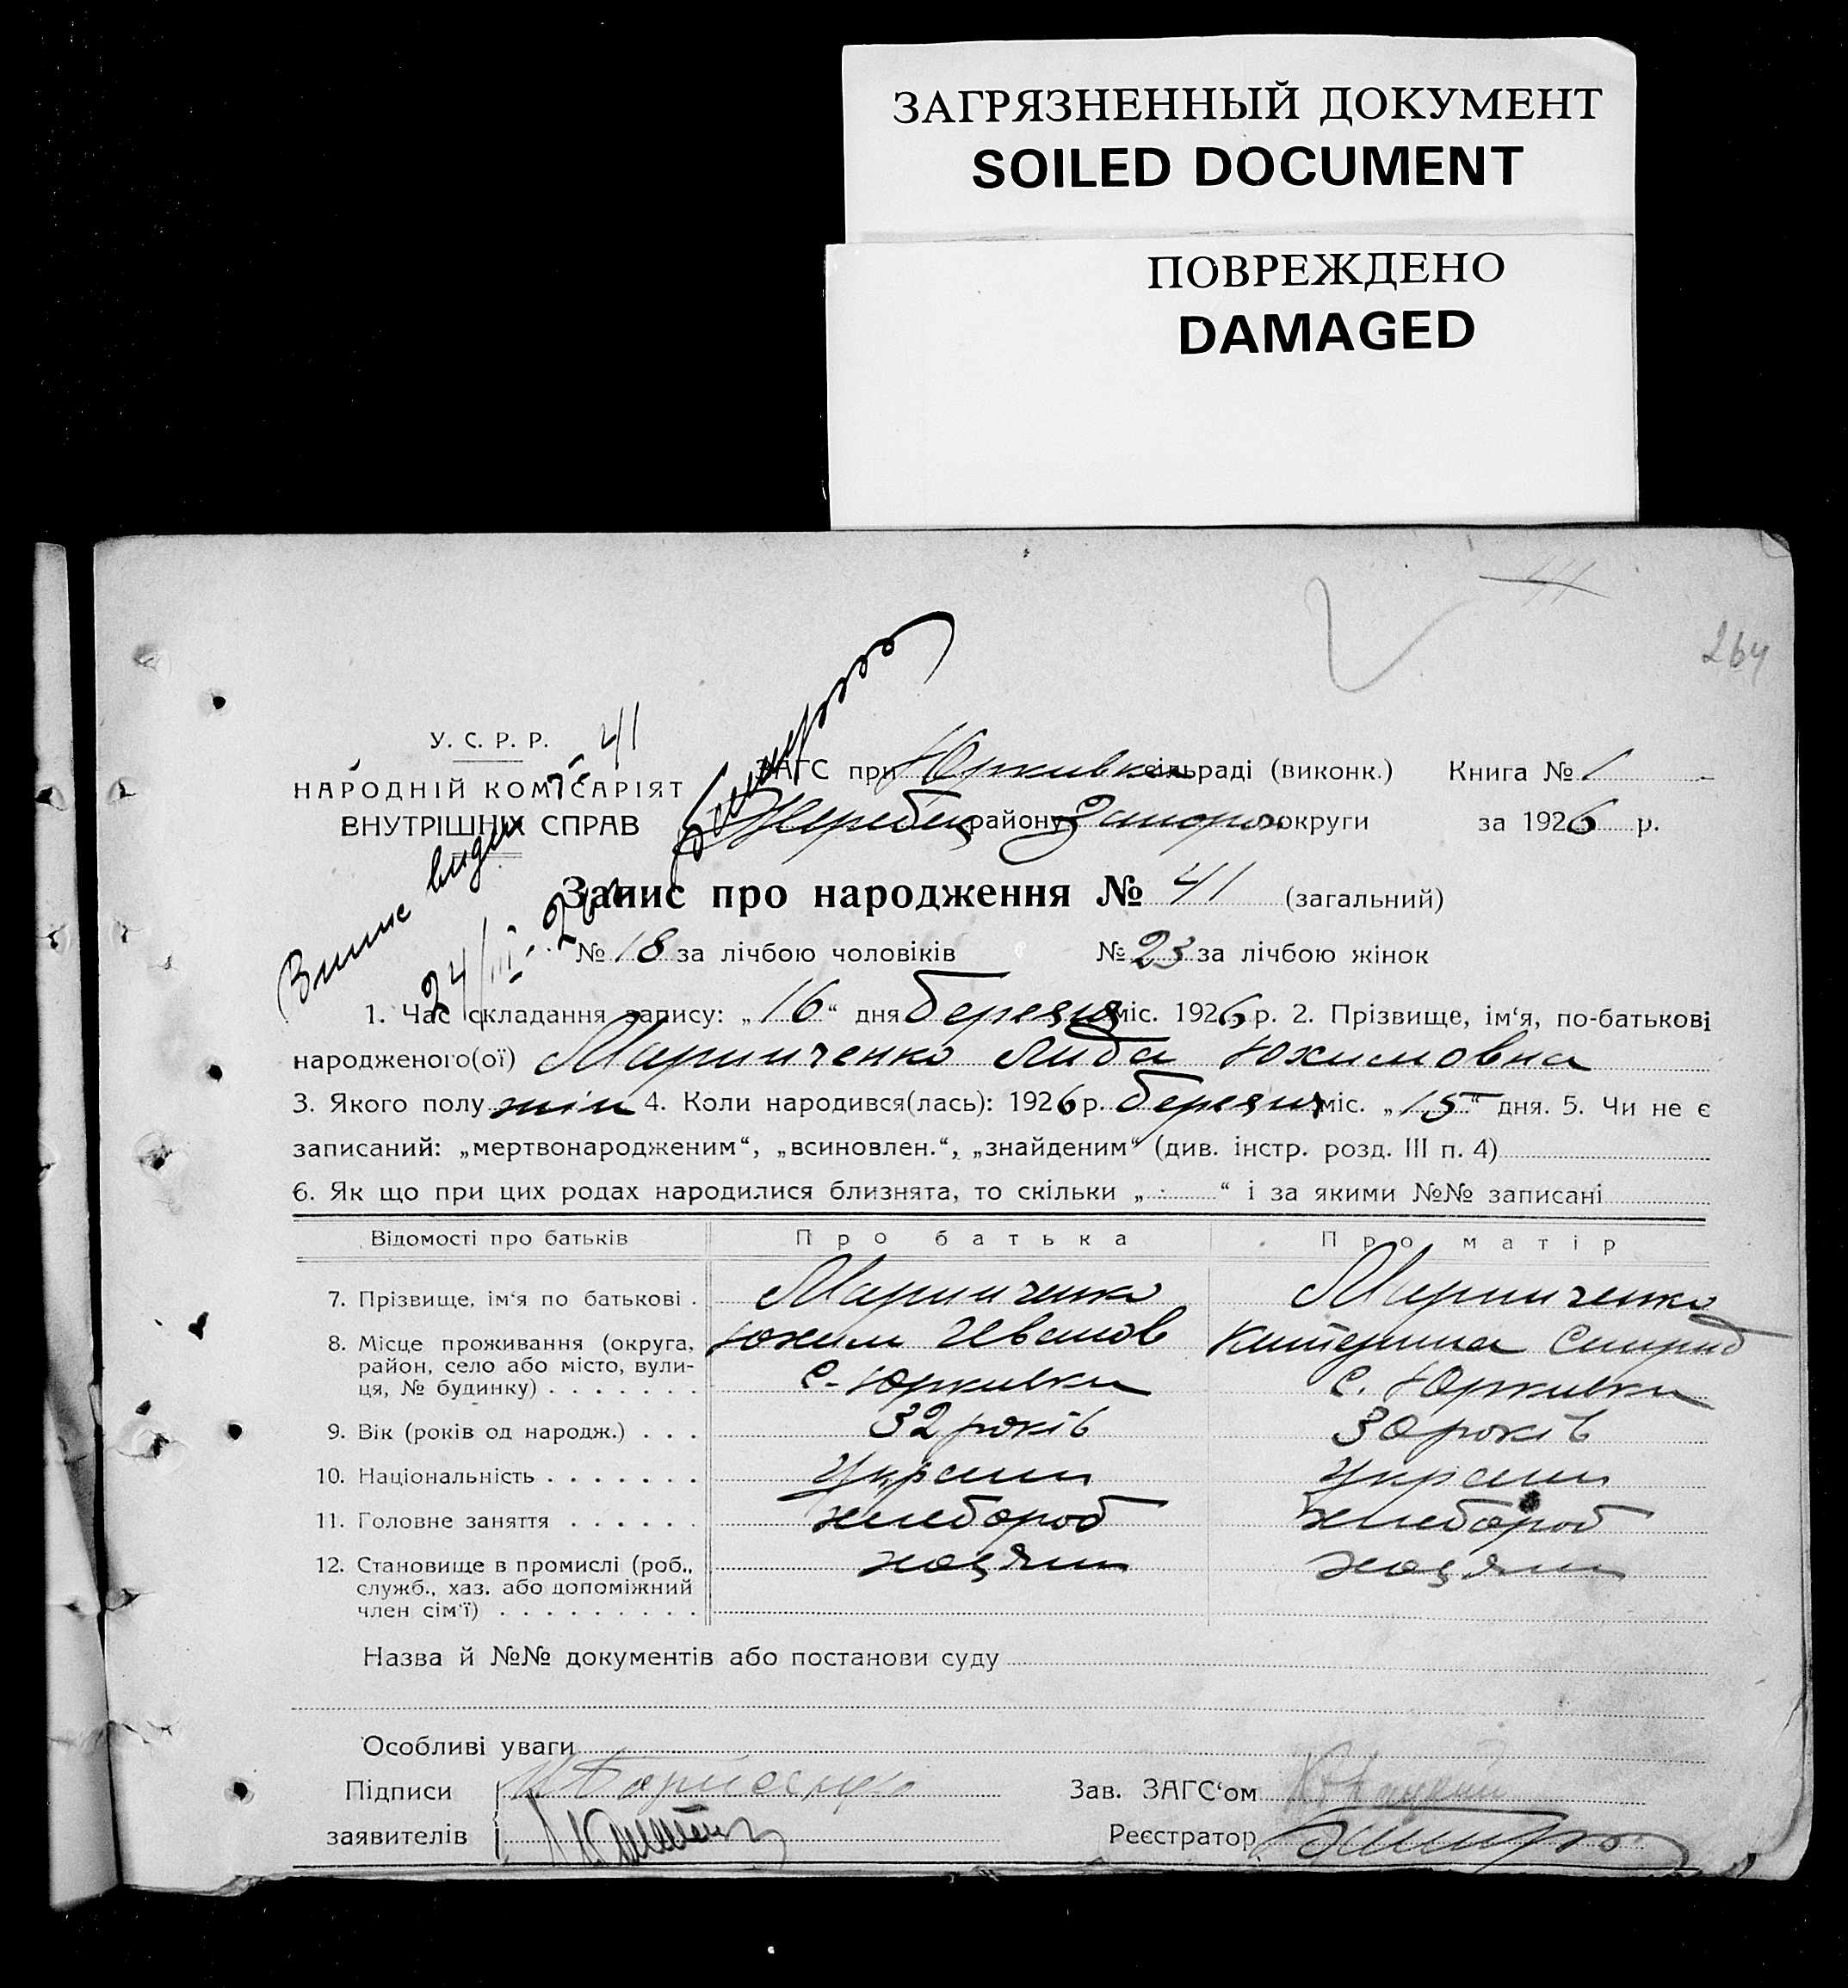 ЗАГРЯЗНЕННЫЙ ДОКУМЕНТ
SOILED DOCUMENT
ПОВРЕЖДЕНО
DAMAGED
41
264
У. С. Р. Р. 41
НАРОДНІЙ КОМІСАРІЯТ
ВНУТРІШНІХ СПРАВ
ЗАГС при Юрківкій сільраді (виконк.) Книга № 1
Жеребец району Запорож округи за 1926 р.
Запис про народження № 41 (загальний)
24/III-26
№ 18 за лічбою чоловіків № 23 за лічбою жінок
1. Час складання запису: „16“ дня березня міс. 1926 р. 2. Прізвище, ім'я, по-батькові
народженого(ої) Маринченко Люба Юхимовна
3. Якого полу жін 4. Коли народився(лась): 1926 р. березня міс. „15“ дня. 5. Чи не є
записаний: „мертвонародженим“, „всиновлен.“, „знайденим“ (див. інстр. розд. III п. 4)
6. Як що при цих родах народилися близнята, то скільки „ “ і за якими №№ записані
Відомості про батьків Про батька Про матір
7. Прізвище, ім'я по батькові . Маринченко Маринченко
Юхим Иванов Катерина Спирид
8. Місце проживання (округа,
район, село або місто, вули-
ця, № будинку) . . . . . . . с. Юрківка с. Юрківка
9. Вік (років од народж.) . . . 32 років 30 років
10. Національність . . . . . . . Україн Україн
11. Головне заняття . . . . . . хлебороб хлебороб
12. Становище в промислі (роб., хазяин хазяин
служб., хаз. або допоміжний
член сім'ї) . . . . . . . . .
Назва й №№ документів або постанови суду
Особливі уваги
Підписи Зав. ЗАГС'ом
заявителів Реєстратор